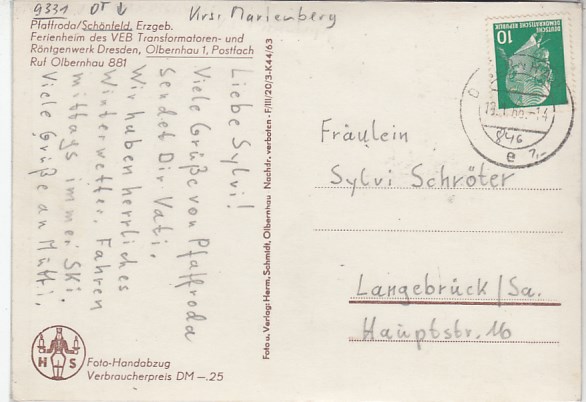 9331 OT
Krs: Marienberg
Pfaffroda/Schönfeld, Erzgeb.
Ferienheim des VEB Transformatoren- und
Röntgenwerk Dresden, Olbernhau 1, Postfach
Ruf Olbernhau 881
Liebe Sylvi!
Viele Grüße von Pfaffroda
sendet Dir Vati.
Wir haben herrliches
Winterwetter. Fahren
mittags immer Ski.
Viele Grüße an Mutti.
Foto u. Verlag: Herm. Schmidt, Olbernhau Nachdr. verboten - F/III/20/3-K44/63
DEUTSCHE
DEMOKRATISCHE REPUBLIK
10
846
e
Fräulein
Sylvi Schröter
Langebrück/Sa.
Hauptstr. 16
H S
Foto-Handabzug
Verbraucherpreis DM —.25